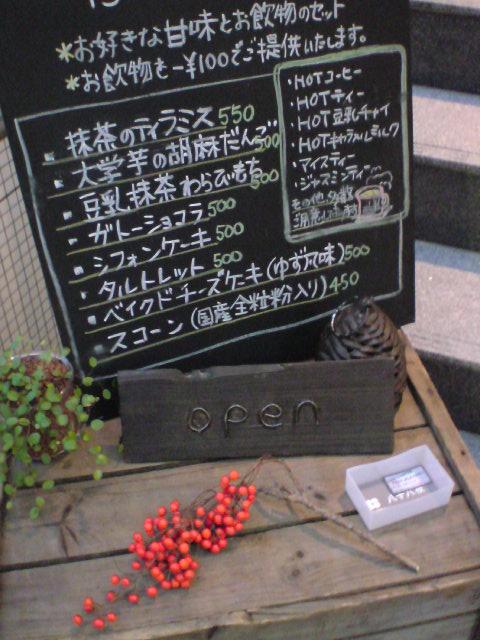 *お好きな甘味とお飲物のセット
*お飲物も-¥100でご提供いたします。
抹茶のティラミス 550
大学芋の胡麻だんご 500
豆乳抹茶わらびもち 500
ガトーショコラ 500
シフォンケーキ 500
タルトレット 500
ベイクドチーズケーキ(ゆず风味) 500
スコーン(国産全粒粉入り) 450
・HOTコーヒー
・HOTティー
・HOT豆乳チャイ
・HOTキャラメルミルク
・アイスティー
・ジャスミンティー
その他多数
open